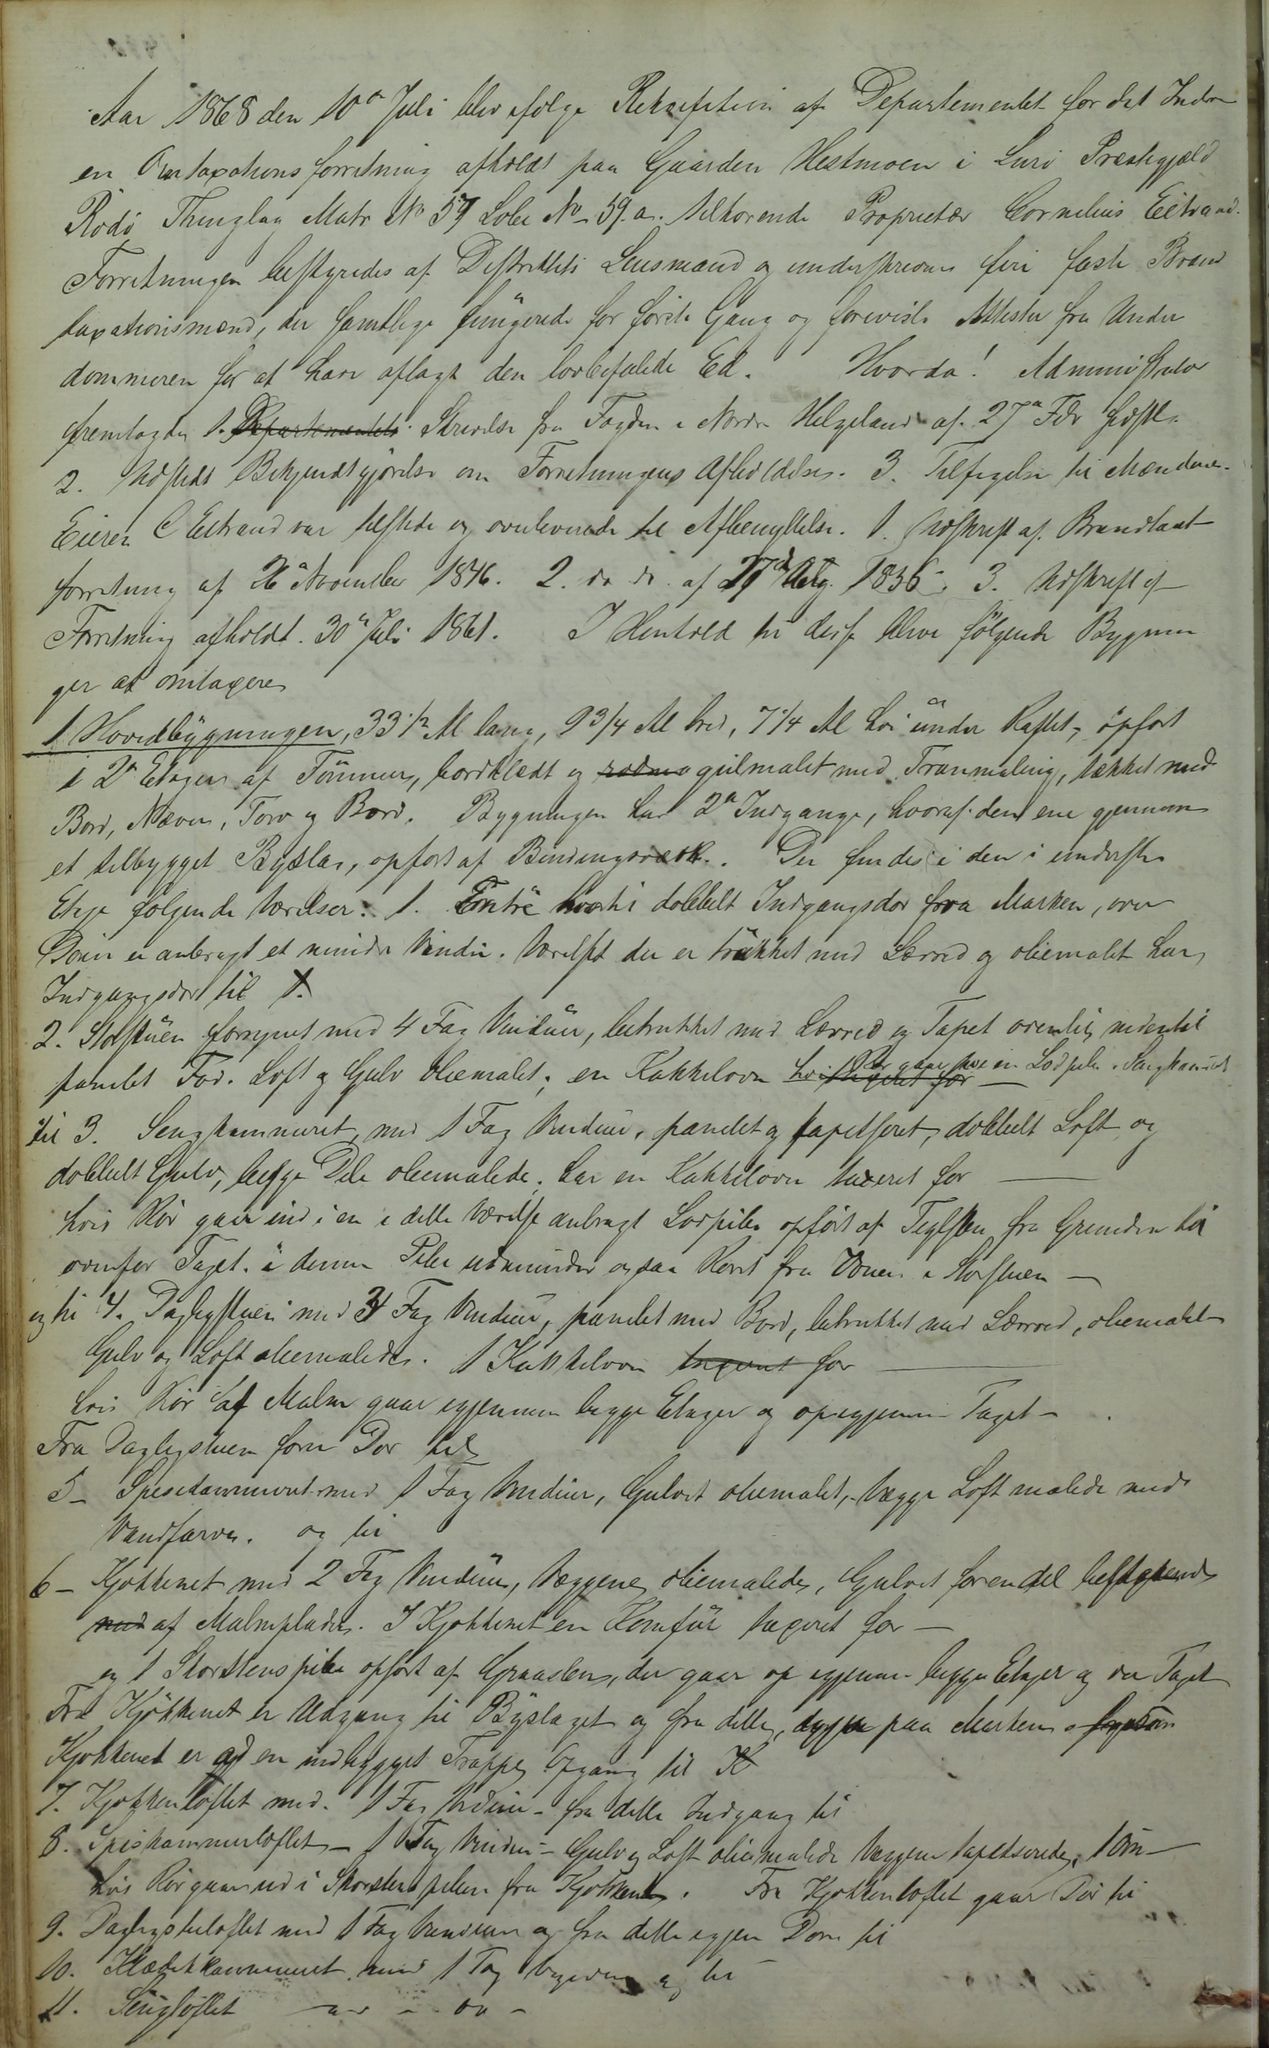 Aar 1868 den 10de Juli blev ifølge Rekvisition af Departementet for det Indre
en Omtaxationsforretning afholdt paa Gaarden Hestmoen i Lurø Præstegjæld
Rødø Thinglag Matr No 57 Løbe No 59.a. tilhørende Proprietær Cornelius Eltrand.
Forretningen bestyredes af Distriktets Lensmand og underskrevne fire faste Brand
taxationsmænd, der samtlige fungerede for første Gang og foreviste Attester fra Under
dommeren for at have aflagt den lovbefalede Ed. Hvorda! Administrator
fremlagde 1. Departementets Skrivelse fra Fogden i Nordre Helgeland af 27de Febr sidstl.
2. Udstedt Bekjendtgjørelse om Forretningens Afholdelse. 3. Tilsigelse til Mændene.
Eieren C Eltrand var tilstede og overleverede til Afbenyttelse. 1. Udskrift af Brandtaxt
forretning af 26de November 1846. 2. do do. af 27de Aug. 1856. 3. Udskrift af
Forretning afholdt 30de Juli 1861. I Henhold til disse blive følgende Bygnin
ger at omtaxere
1 Hovedbygningen, 33 1/2 Al lang, 9 3/4 Al bred, 7 1/4 Al høi under Raftet, opført
i 2de Etager af Tømmer, bordklædt og gulmalet med Tranmaling, tækket med
Bord, Næver, Torv og Bord. Bygningen har 2de Indgange, hvoraf den ene gjennem
et tilbygget Byslag, opført af Bindingsværk. Der findes i den i underste
Etage følgende Værelser: 1. Entré hvortil dobbelt Indgangsdør fra Marken, over
Døren er anbragt et mindre Vindue. Værelset der er trukket med Lærred og oliemalet har
Indgangsdør til
2. Storstuen forsynet med 4 Fag Vinduer, betrukket med Lærred og Tapet oventil, nedentil
panelet Fod. Loft og Gulv oliemalet; en Kakkelovn hvis Rør gaar ind i en Lodpibe i Sengkammeret
til 3. Sengkammeret, med 1 Fag Vinduer, panelet og tapetseret, dobbelt Loft og
dobbelt Gulv, begge Dele oliemalede; har en Kakkelovn taxeret for —
hvis Rør gaar ind i en i dette Værelse anbragt Lodpibe opført af Teglsten fra Grunden til
ovenfor Taget. i denne Pibe udmunder ogsaa Røret fra Ovnen i Storstuen —
og til 4. Dagligstuen med 3 Fag Vinduer, panelet med Bord, betrukket med Lærred, oliemalet
Gulv og Loft oliemalede. 1 Kakkelovn taxeret for —
hvis Rør af Malm gaar igjennem begge Etager og op igjennem Taget —
Fra Dagligstuen fører Dør til
5 — Spisekammeret med 1 Fag Vinduer, Gulvet oliemalet, Vægge Loft malede med
Vandfarve. og til
6 — Kjøkkenet med 2 Fag Vinduer, Væggene oliemalede, Gulvet forendel bestaaende
med af Malmplader. I Kjøkkenet en Komfur taxeret for —
og 1 Skorstenspibe opført af Graasten, der gaar op igjennem begge Etager og over Taget
Fra Kjøkkenet er Udgang til Byslaget og fra dette paa Marken.
Kjøkkenet er af en indbygget Trappe Opgang til
7. Kjøkkenloftet med 1 Fag Vinduer — fra dette Indgang til
8. Spiskammerloftet — 1 Fag Vinduer — Gulv og Loft oliemalede Væggene tapetserede, 1 Ovn —
hvis Rør gaar ud i Skorstenspiben fra Kjøkkenet. Fra Kjøkkenloftet gaar Dør til
9. Dagligstueloftet med 1 Fag Vinduer og fra dette igjen Dør til
10. Klædekammeret med 1 Fag Vinduer og til
11. Sengloftet — do — do —